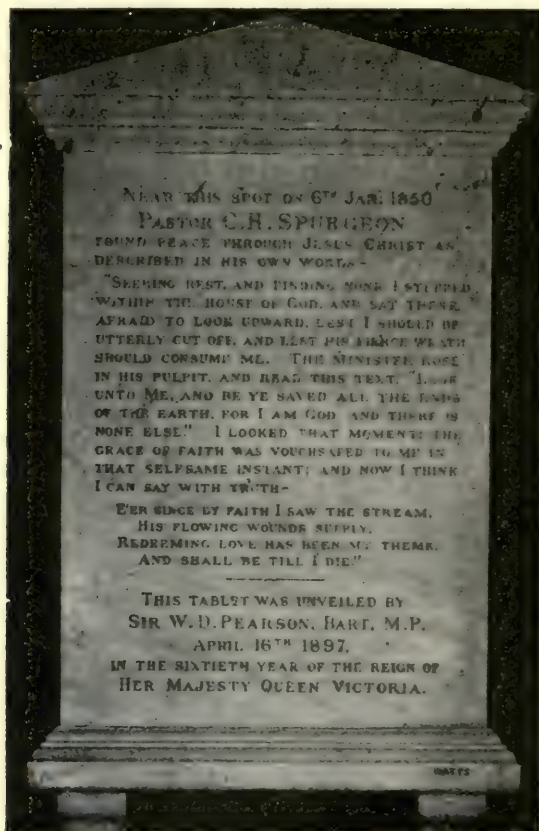 NEAR THIS SPOT ON 6TH JAN: 1850
PASTOR C.H. SPURGEON
FOUND PEACE THROUGH JESUS CHRIST AS
DESCRIBED IN HIS OWN WORDS-
"SEEKING REST, AND FINDING NONE I STEPPED
WITHIN THE HOUSE OF GOD, AND SAT THERE,
AFRAID TO LOOK UPWARD, LEST I SHOULD BE
UTTERLY CUT OFF, AND LEST HIS FIERCE WRATH
SHOULD CONSUME ME. THE MINISTER ROSE
IN HIS PULPIT, AND READ THIS TEXT, "LOOK
UNTO ME, AND BE YE SAVED ALL THE ENDS
OF THE EARTH, FOR I AM GOD AND THERE IS
NONE ELSE." I LOOKED THAT MOMENT; THE
GRACE OF FAITH WAS VOUCHSAFED TO ME IN
THAT SELFSAME INSTANT; AND NOW I THINK
I CAN SAY WITH TRUTH-
E'ER SINCE BY FAITH I SAW THE STREAM,
HIS FLOWING WOUNDS SUPPLY,
REDEEMING LOVE HAS BEEN MY THEME,
AND SHALL BE TILL I DIE."
THIS TABLET WAS UNVEILED BY
SIR W.D. PEARSON, BART, M.P.
APRIL 16TH 1897,
IN THE SIXTIETH YEAR OF THE REIGN OF
HER MAJESTY QUEEN VICTORIA.
WATTS